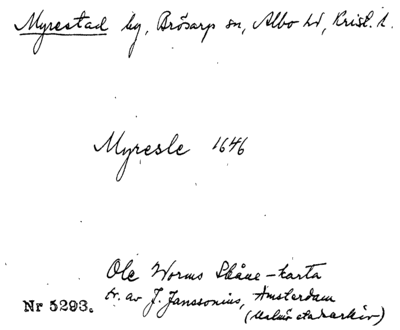 Myrestad by, Brösarp sn, Albo hd, Krist. l.
Myresle 1646
Ole Worms Skåne-karta
tr. av J. Janssonius, Amsterdam
(Malmö stadsarkiv)
Nr 5293.